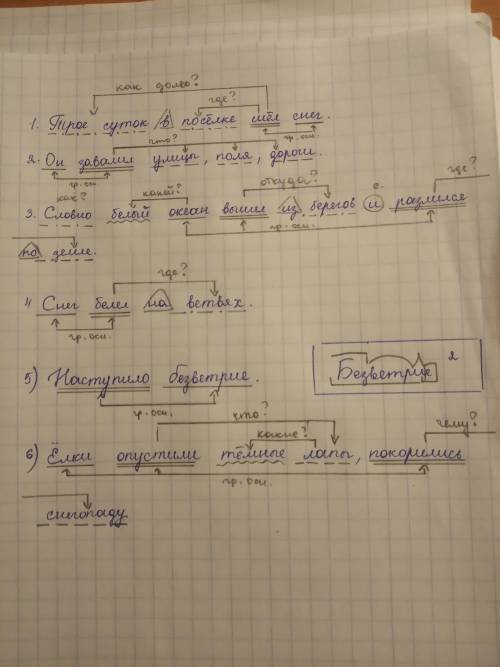 как долго?
где?
1. Трое суток в посёлке шёл снег.
что? гр. осн.
2. Он завалил улицы, поля, дороги.
гр. осн.
как? какой? откуда? с. где?
3. Словно белый океан вышел из берегов и разлился
гр. осн.
по земле.
где?
4 Снег белел на ветвях.
гр. осн.
5) Наступило безветрие.
гр. осн.
Безветрие 2
что?
какие? чему?
6) Ёлки опустили тёмные лапы, покорились
гр. осн.
снегопаду